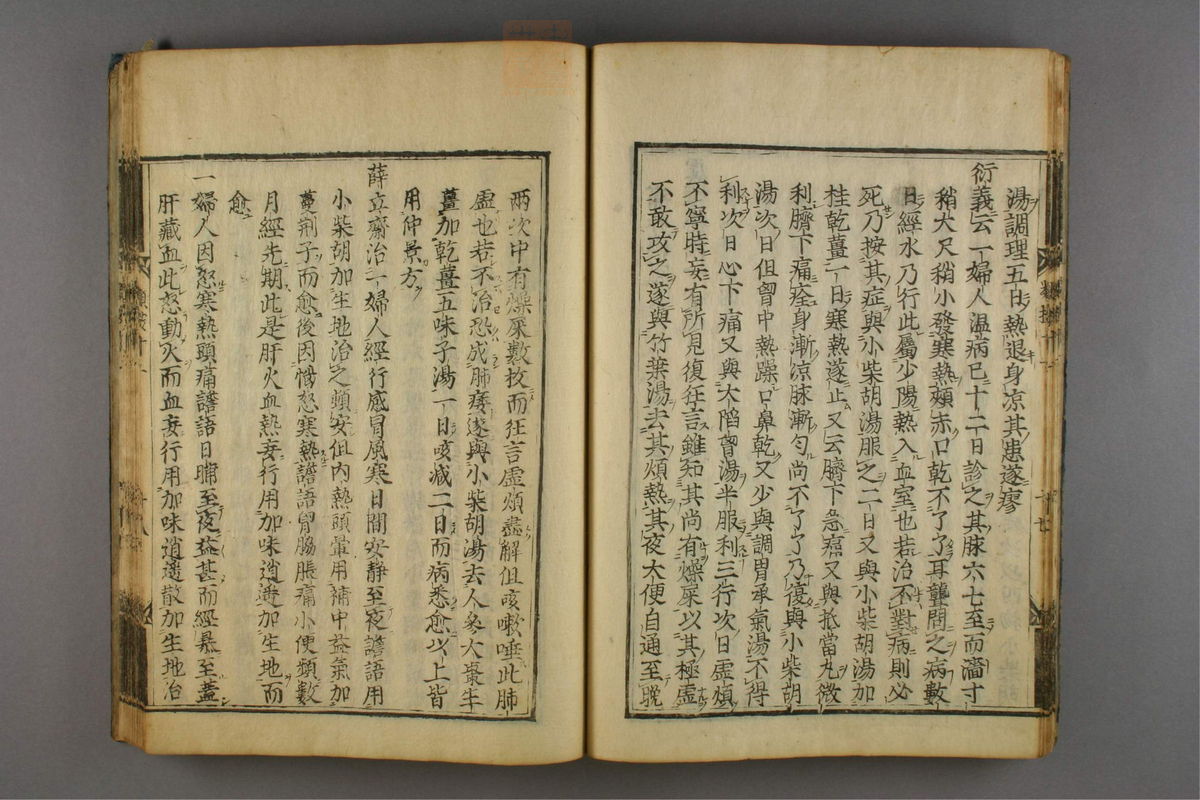 湯調理五日熱退身凉其患遂瘳
衍義云一婦人温病已十二日診之其脉六七至而濇寸
稍大尺稍小發寒熱頬赤口乾不了了耳聾問之病數
日經水乃行此屬少陽熱入血室也若治不對病則必
死乃按其症與小柴胡湯服之二日又與小柴胡湯加
桂乾薑一日寒熱遂止又云臍下急痛又與抵當丸微
利臍下痛痊身漸凉脉漸匀尚不了了乃復與小柴胡
湯次日但胷中熱躁口鼻乾又少與調胃承氣湯不得
利次日心下痛又與大陷胷湯半服利三行次日虚煩
不寧時妄有所見復狂言雖知其尚有燥屎以其極虚
不敢攻之遂與竹葉湯去其煩熱其夜大便自通至晩
兩次中有燥屎數枚而狂言虚煩盡解但咳嗽唾此肺
虚也若不治恐成肺痿遂與小柴胡湯去人參大棗生
薑加乾薑五味子湯一日咳减二日而病悉愈以上皆
用仲景方
薛立齋治一婦人經行感冒風寒日間安静至夜譫語用
小柴胡加生地治之頓安但内熱頭暈用補中益氣加
蔓荆子而愈後因惱怒寒熱譫語胷脇脹痛小便頻數
月經先期此是肝火血熱妄行用加味逍遥加生地而
愈
一婦人因怒寒熱頭痛譫語日晡至夜益甚而經暴至蓋
肝藏血此怒動火而血妄行用加味逍遥散加生地治